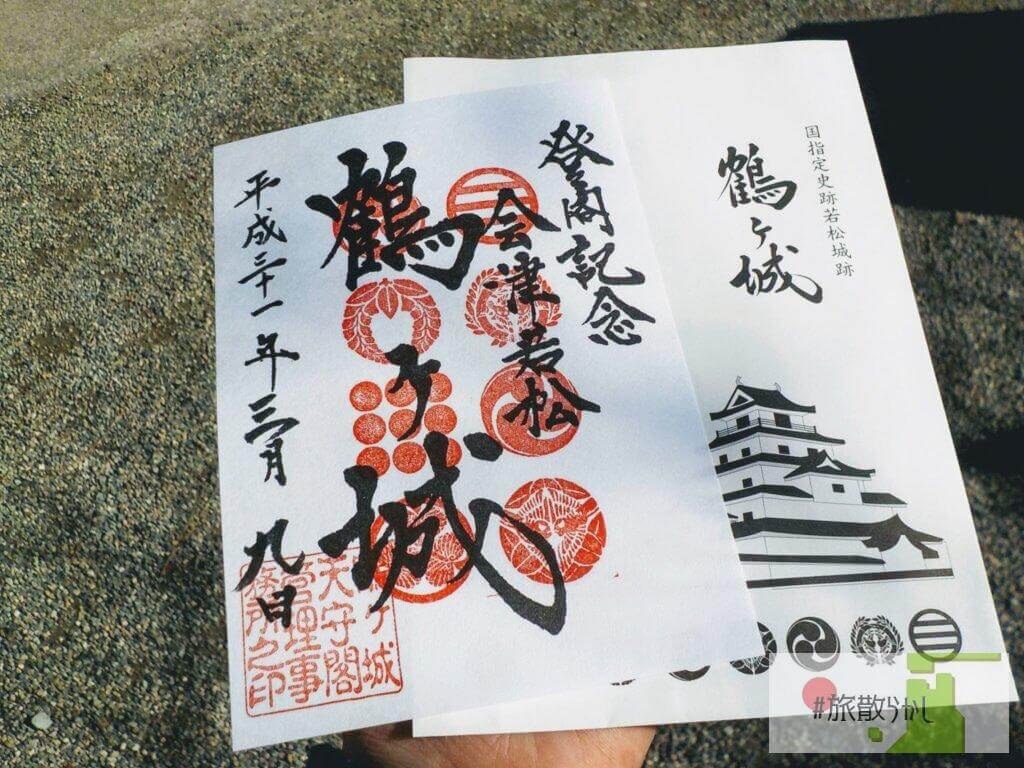 登閣記念
会津若松
鶴ヶ城
平成三十一年三月九日
鶴ヶ城
天守閣
管理事
務所之印
国指定史跡若松城跡
鶴ヶ城
#旅散らかし